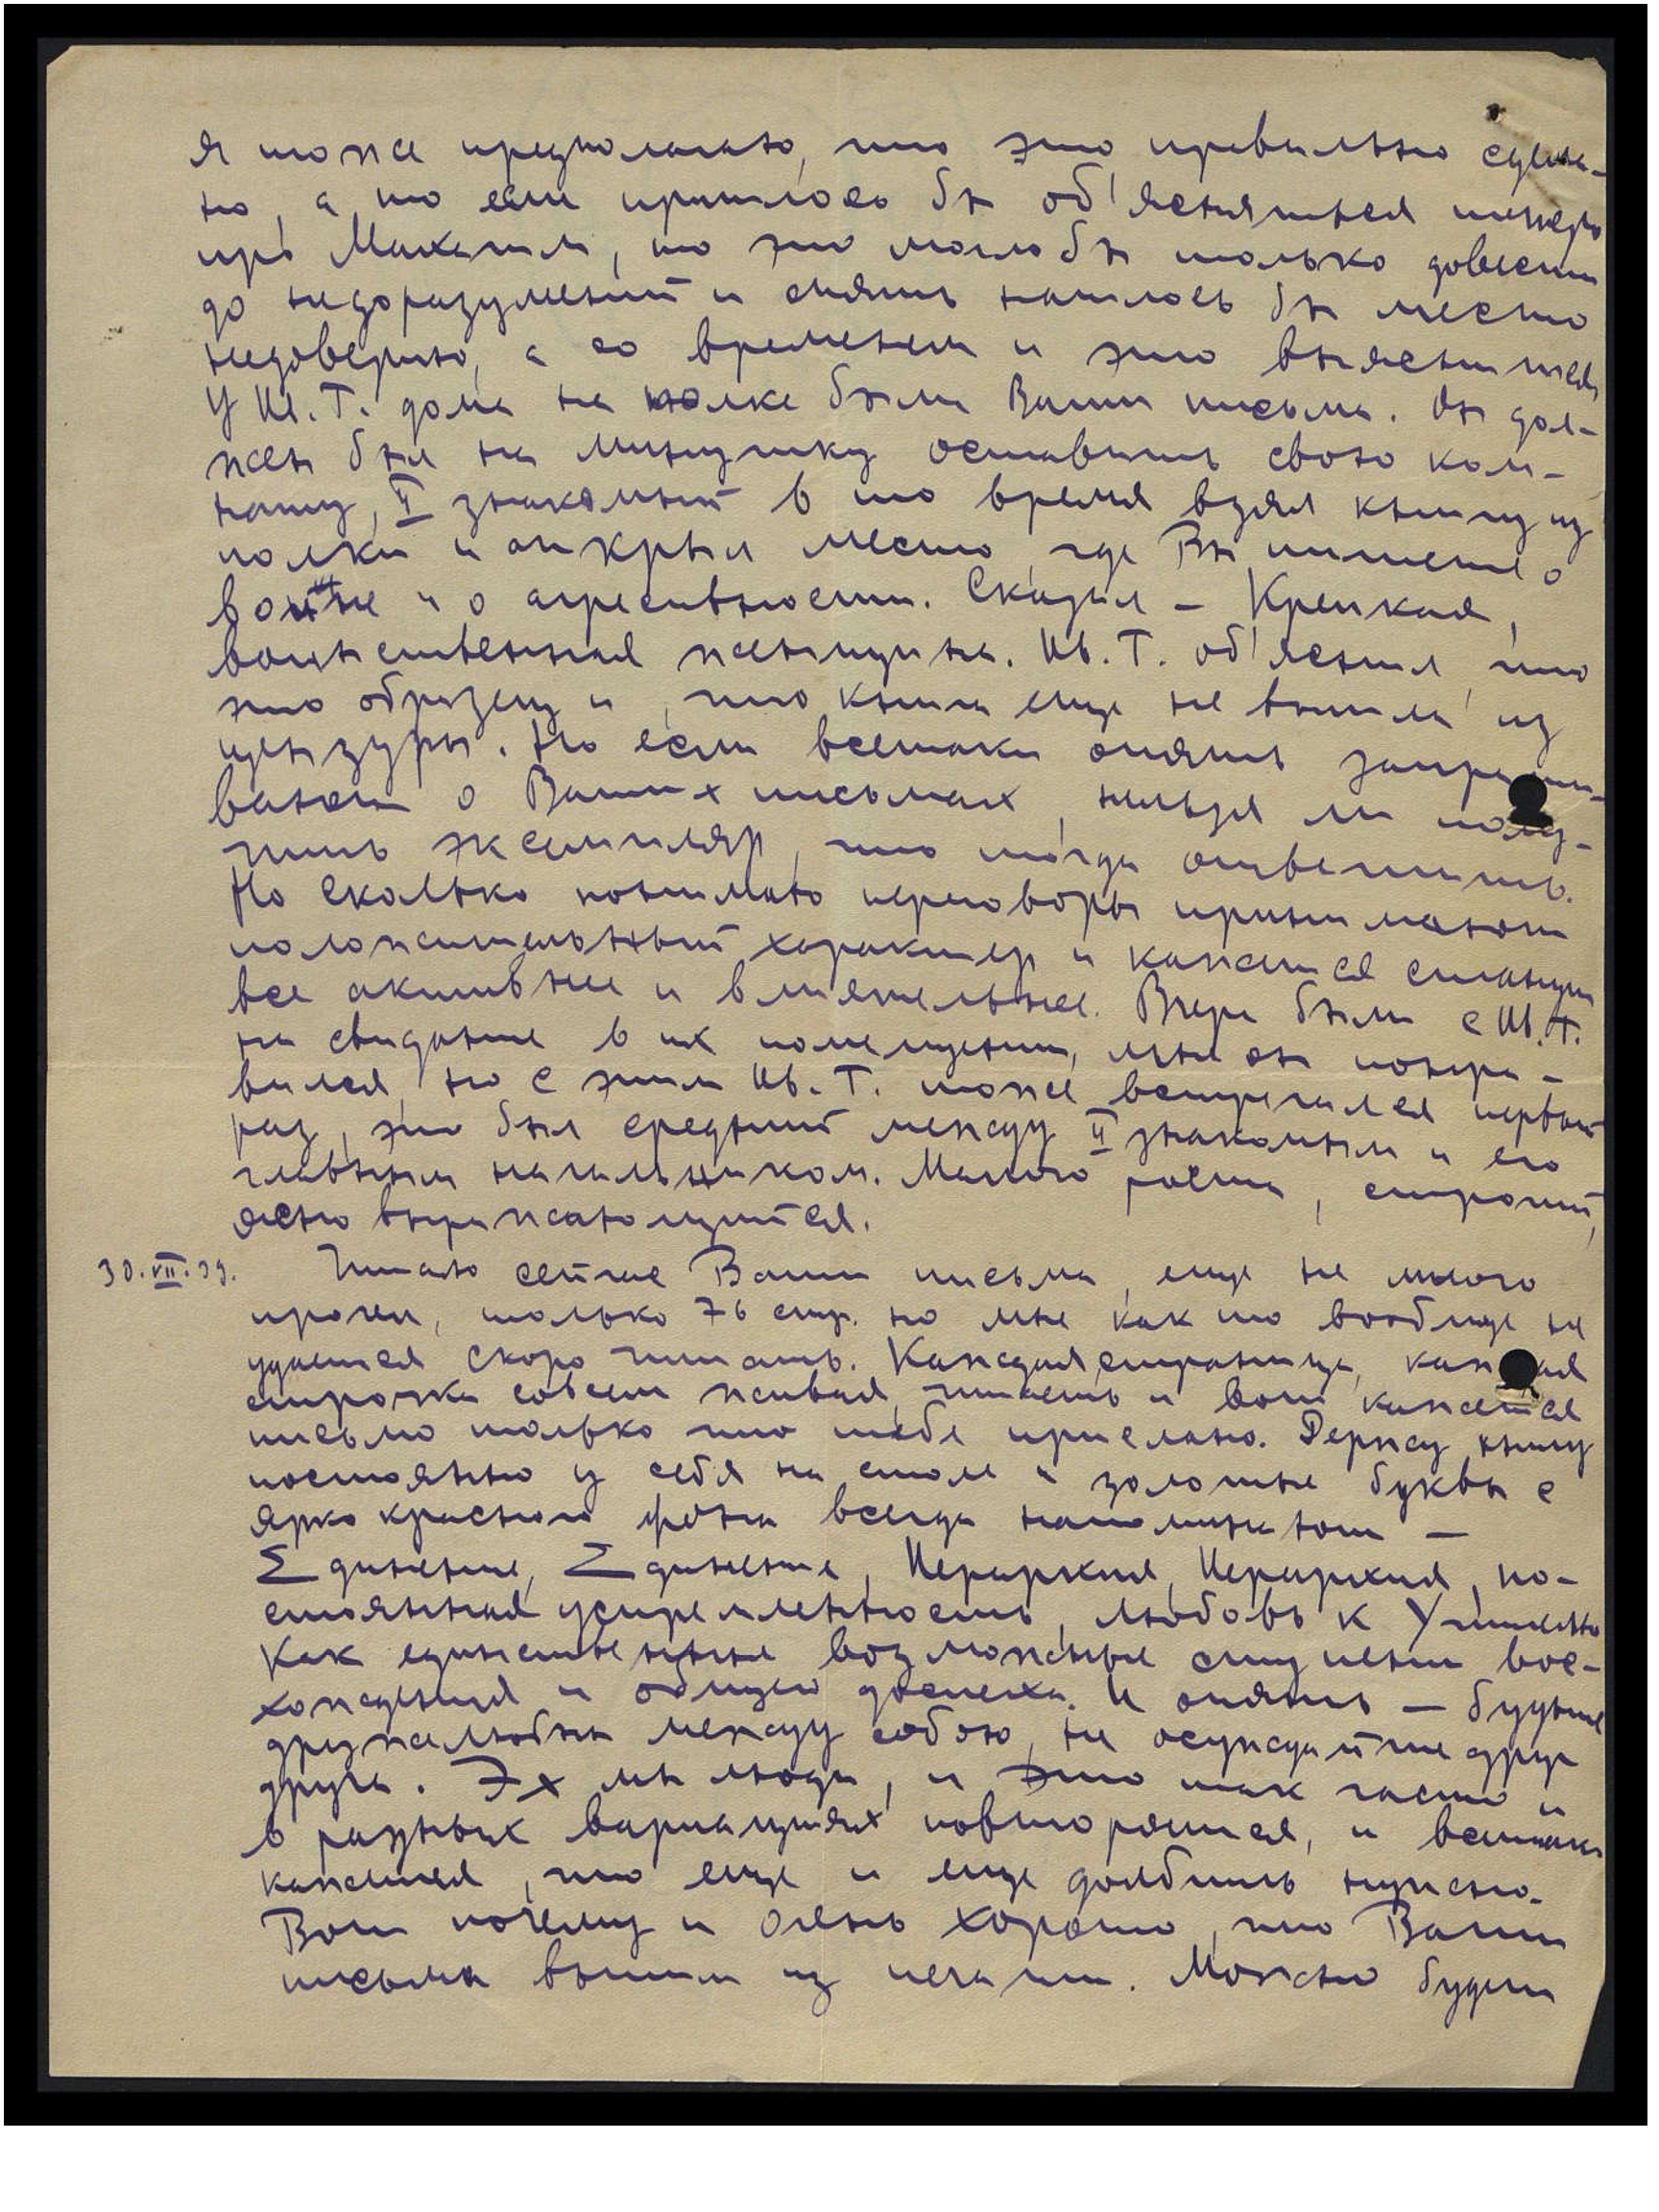 я тоже предполагаю, что это правильно сдела-
но, а то если пришлось бы об'ясняться теперь
про Махатм, то это могло бы только довести
до недоразумений и опять нашлось бы место
недоверию, а со временем и это выяснится
У Ив. Т. дома на полке были Ваши письма. Он дол-
жен был на минутку оставить свою ком-
нату, II знакомый в то время взял книгу из
полки и открыл место, где Вы пишете о
войне и о агресивности. Сказал – Крепкая,
воинственная женщина. Ив. Т. об'яснил, что
это образец и, что книга еще не вышла из
цензуры. Но если всетаки опять запраши-
вают о Ваших письмах, нельзя ли полу-
чить экземпляр, что тогда ответить.
На сколько понимаю переговоры принимают
положительный характер и кажется станут
все активнее и влиятельнее. Вчера были с Ив. Т.
на свидание в их помещении, мне он понра-
вился, но с этим Ив. Т. тоже встречался первый
раз, это был средний между II знакомым и его
главным начальником. Малого роста, строгий,
ясно выражающийся.
30.VII.39. Читаю сейчас Ваши письма, еще не много
прочел, только 76 стр. но мне как то вообще не
удается скоро читать. Каждая страница, каждая
строчка совсем живая, читаешь и вот кажется
письмо только что тебе прислано. Держу книгу
постоянно у себя на столе и золотые буквы с
ярко красного фона всегда напоминают –
Единение, Единение, Иерархия, Иерархия, по-
стоянная устремленность, любовь к Учителю
Как единственные возможные ступени вос-
хождения и общего доспеха. И опять – будьте
дружелюбны между собою, не осуждайте друг
друга. Эх мы люди, и это так часто и
в разных вариациях повторяется, и всетаки
кажется, что еще и еще долбить нужно.
Вот почему и очень хорошо, что Ваши
письма вышли из печати. Можно будет